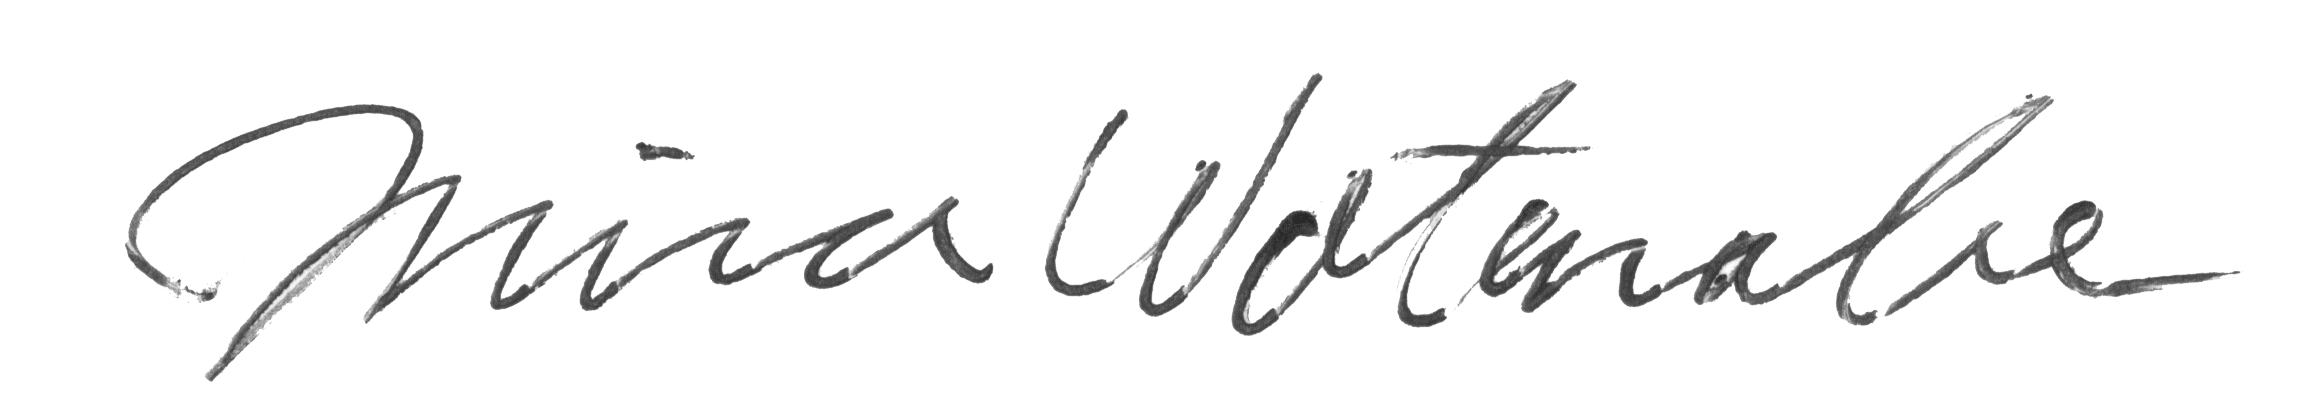 Mina Watanabe